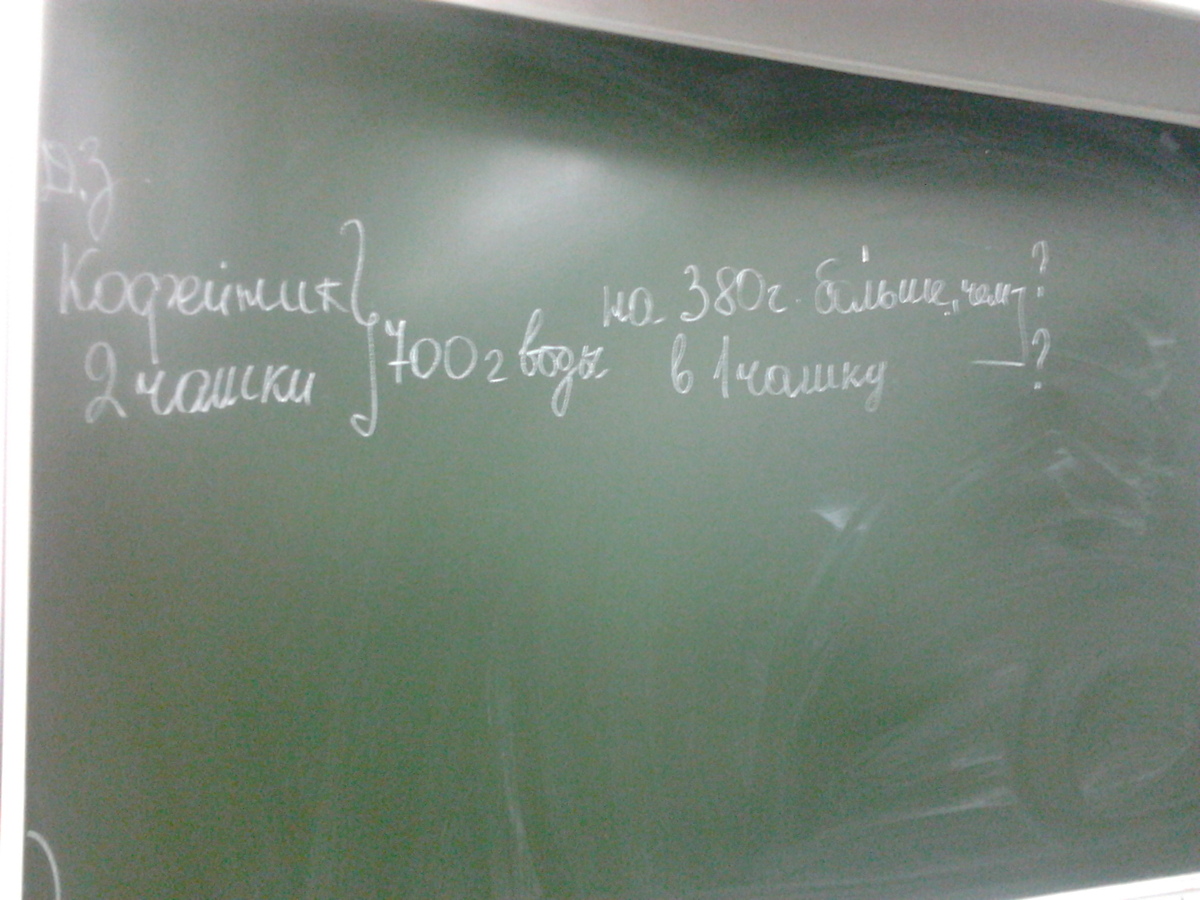 Д.З
Кофейник
2 чашки
700 г воды
на 380 г. больше, чем ?
в 1 чашку ?